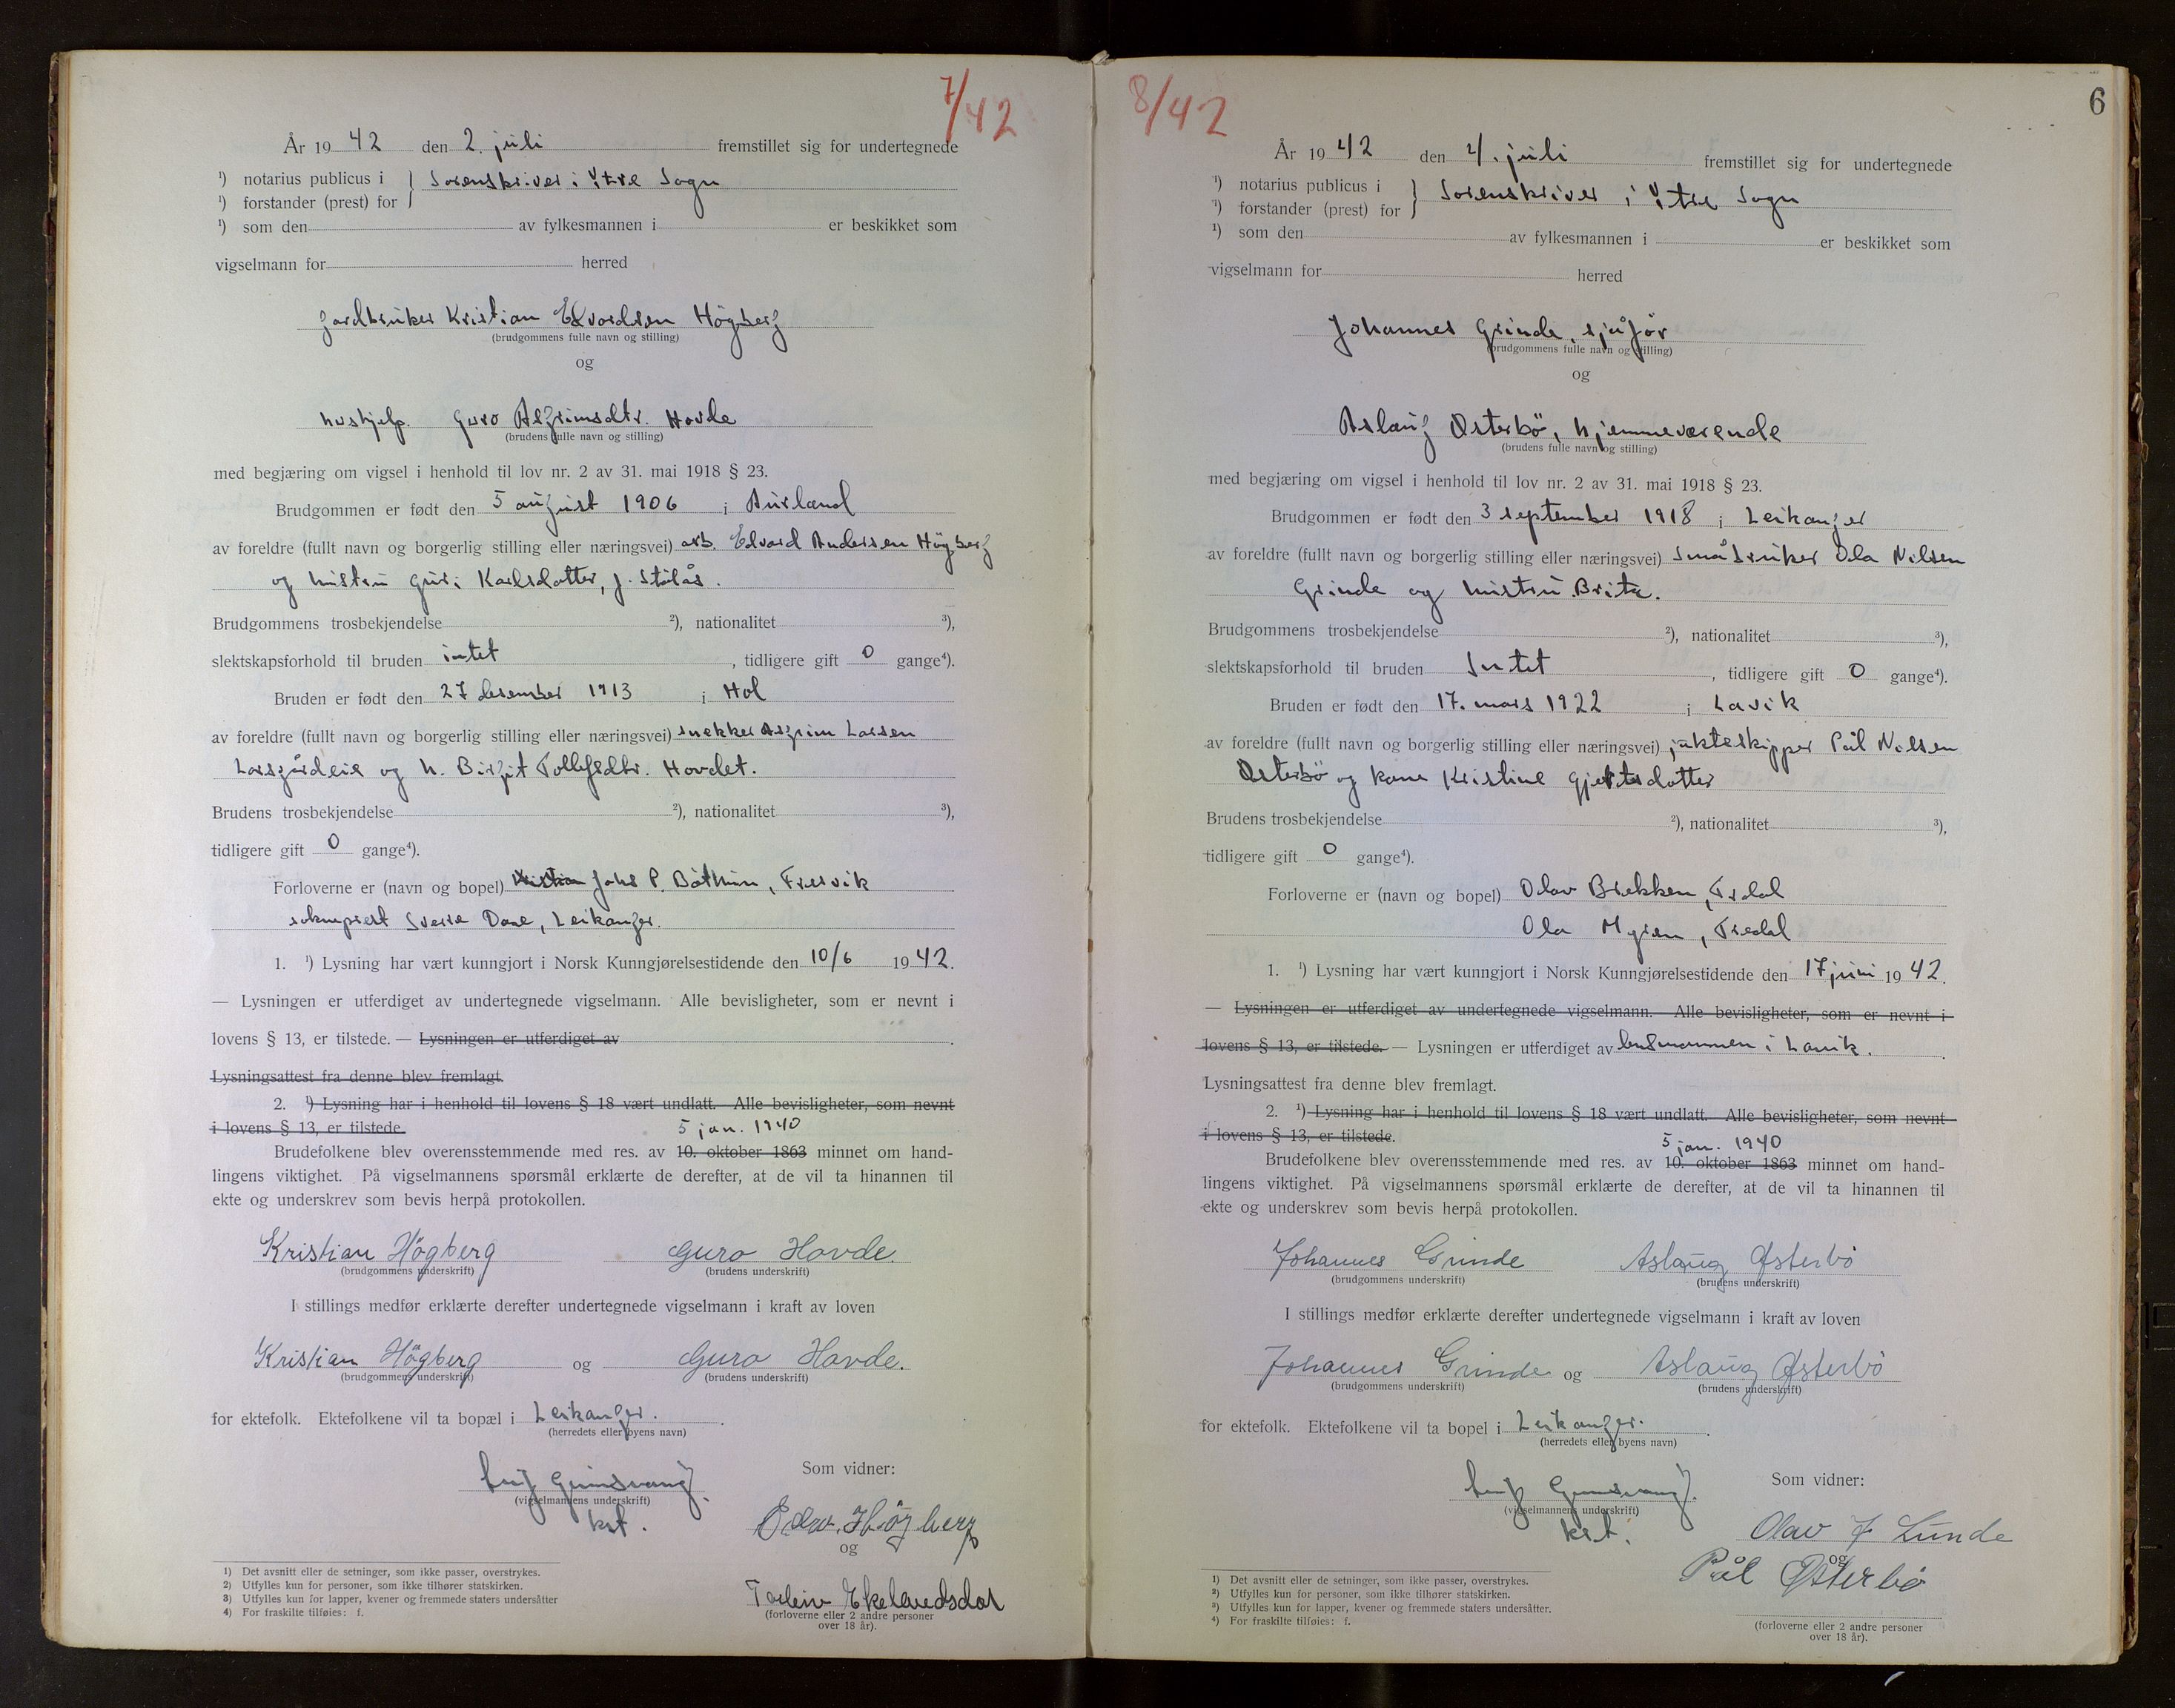 7/42
År 1942 den 2. juli fremstillet sig for undertegnede
¹) notarius publicus i } Sorenskriver i Ytre Sogn
¹) forstander (prest) for
¹) som den av fylkesmannen i er beskikket som
vigselmann for herred
Jordbruker Kristian Edvardsen Högberg
(brudgommens fulle navn og stilling)
og
hushjelp. Guro Asgrimsdtr. Hovde
(brudens fulle navn og stilling)
med begjæring om vigsel i henhold til lov nr. 2 av 31. mai 1918 § 23.
Brudgommen er født den 5 august 1906 i Aurland
av foreldre (fullt navn og borgerlig stilling eller næringsvei) arb. Edvard Andersen Högberg
og hustru Guri Karlsdatter, f. Stålås.
Brudgommens trosbekjendelse ²), nationalitet ³),
slektskapsforhold til bruden intet, tidligere gift 0 gange⁴).
Bruden er født den 27 desember 1913 i Hol
av foreldre (fullt navn og borgerlig stilling eller næringsvei) snekker Asgrim Larsen
Larsgårdeie og h. Birgit Tollefsdtr. Hovdet.
Brudens trosbekjendelse ²), nationalitet ³),
tidligere gift 0 gange⁴).
Forloverne er (navn og bopel) Kristian Johs P. Böthun, Fresvik
soknprest Sverre Daae, Leikanger.
1. ¹) Lysning har vært kunngjort i Norsk Kunngjørelsestidende den 10/6 1942.
— Lysningen er utferdiget av undertegnede vigselmann. Alle bevisligheter, som er nevnt i
lovens § 13, er tilstede. — Lysningen er utferdiget av .
Lysningsattest fra denne blev fremlagt.
2. ¹) Lysning har i henhold til lovens § 18 vært undlatt. Alle bevisligheter, som nevnt
i lovens § 13, er tilstede.
5 jan. 1940
Brudefolkene blev overensstemmende med res. av 10. oktober 1863 minnet om hand-
lingens viktighet. På vigselmannens spørsmål erklærte de derefter, at de vil ta hinannen til
ekte og underskrev som bevis herpå protokollen.
Kristian Högberg Guro Hovde.
(brudgommens underskrift) (brudens underskrift)
I stillings medfør erklærte derefter undertegnede vigselmann i kraft av loven
Kristian Högberg og Guro Hovde.
(brudgommens underskrift) (brudens underskrift)
for ektefolk. Ektefolkene vil ta bopæl i Leikanger.
(herredets eller byens navn)
Som vidner:
(vigselmannens underskrift)
kst.
Edv. Högberg
og
Torleiv
(forloverne eller 2 andre personer
over 18 år).
¹) Det avsnitt eller de setninger, som ikke passer, overstrykes.
²) Utfylles kun for personer, som ikke tilhører statskirken.
³) Utfylles kun for lapper, kvener og fremmede staters undersåtter
⁴) For fraskilte tilføies: f.
6
8/42
År 1942 den 4. juli fremstillet sig for undertegnede
¹) notarius publicus i } Sorenskriver i Ytre Sogn
¹) forstander (prest) for
¹) som den av fylkesmannen i er beskikket som
vigselmann for herred
Johannes Grinde, sjåfør
(brudgommens fulle navn og stilling)
og
Aslaug Østerbö, hjemmeværende
(brudens fulle navn og stilling)
med begjæring om vigsel i henhold til lov nr. 2 av 31. mai 1918 § 23.
Brudgommen er født den 3 september 1918 i Leikanger
av foreldre (fullt navn og borgerlig stilling eller næringsvei) småbruker Ola Nilsen
Grinde og hustru Brita.
Brudgommens trosbekjendelse ²), nationalitet ³),
slektskapsforhold til bruden Intet, tidligere gift 0 gange⁴).
Bruden er født den 17. mars 1922 i Lavik
av foreldre (fullt navn og borgerlig stilling eller næringsvei) jakteskipper Pål Nilsen
Østerbö og kone Kristine Gjertsdatter
Brudens trosbekjendelse ²), nationalitet ³),
tidligere gift 0 gange⁴).
Forloverne er (navn og bopel) Olav Brekken,
Ola Myren,
1. ¹) Lysning har vært kunngjort i Norsk Kunngjørelsestidende den 17 juni 1942.
— Lysningen er utferdiget av undertegnede vigselmann. Alle bevisligheter, som er nevnt i
lovens § 13, er tilstede. — Lysningen er utferdiget av lensmannen i Lavik.
Lysningsattest fra denne blev fremlagt.
2. ¹) Lysning har i henhold til lovens § 18 vært undlatt. Alle bevisligheter, som nevnt
i lovens § 13, er tilstede.
5 jan. 1940
Brudefolkene blev overensstemmende med res. av 10. oktober 1863 minnet om hand-
lingens viktighet. På vigselmannens spørsmål erklærte de derefter, at de vil ta hinannen til
ekte og underskrev som bevis herpå protokollen.
Johannes Grinde Aslaug Østerbö
(brudgommens underskrift) (brudens underskrift)
I stillings medfør erklærte derefter undertegnede vigselmann i kraft av loven
Johannes Grinde og Aslaug Østerbö
(brudgommens underskrift) (brudens underskrift)
for ektefolk. Ektefolkene vil ta bopel i Leikanger.
(herredets eller byens navn)
Som vidner:
(vigselmannens underskrift)
kst.
Olav J. Lunde
og
Pål Østerbø
(forloverne eller 2 andre personer
over 18 år).
¹) Det avsnitt eller de setninger, som ikke passer, overstrykes.
²) Utfylles kun for personer, som ikke tilhører statskirken.
³) Utfylles kun for lapper, kvener og fremmede staters undersåtter.
⁴) For fraskilte tilføies: f.